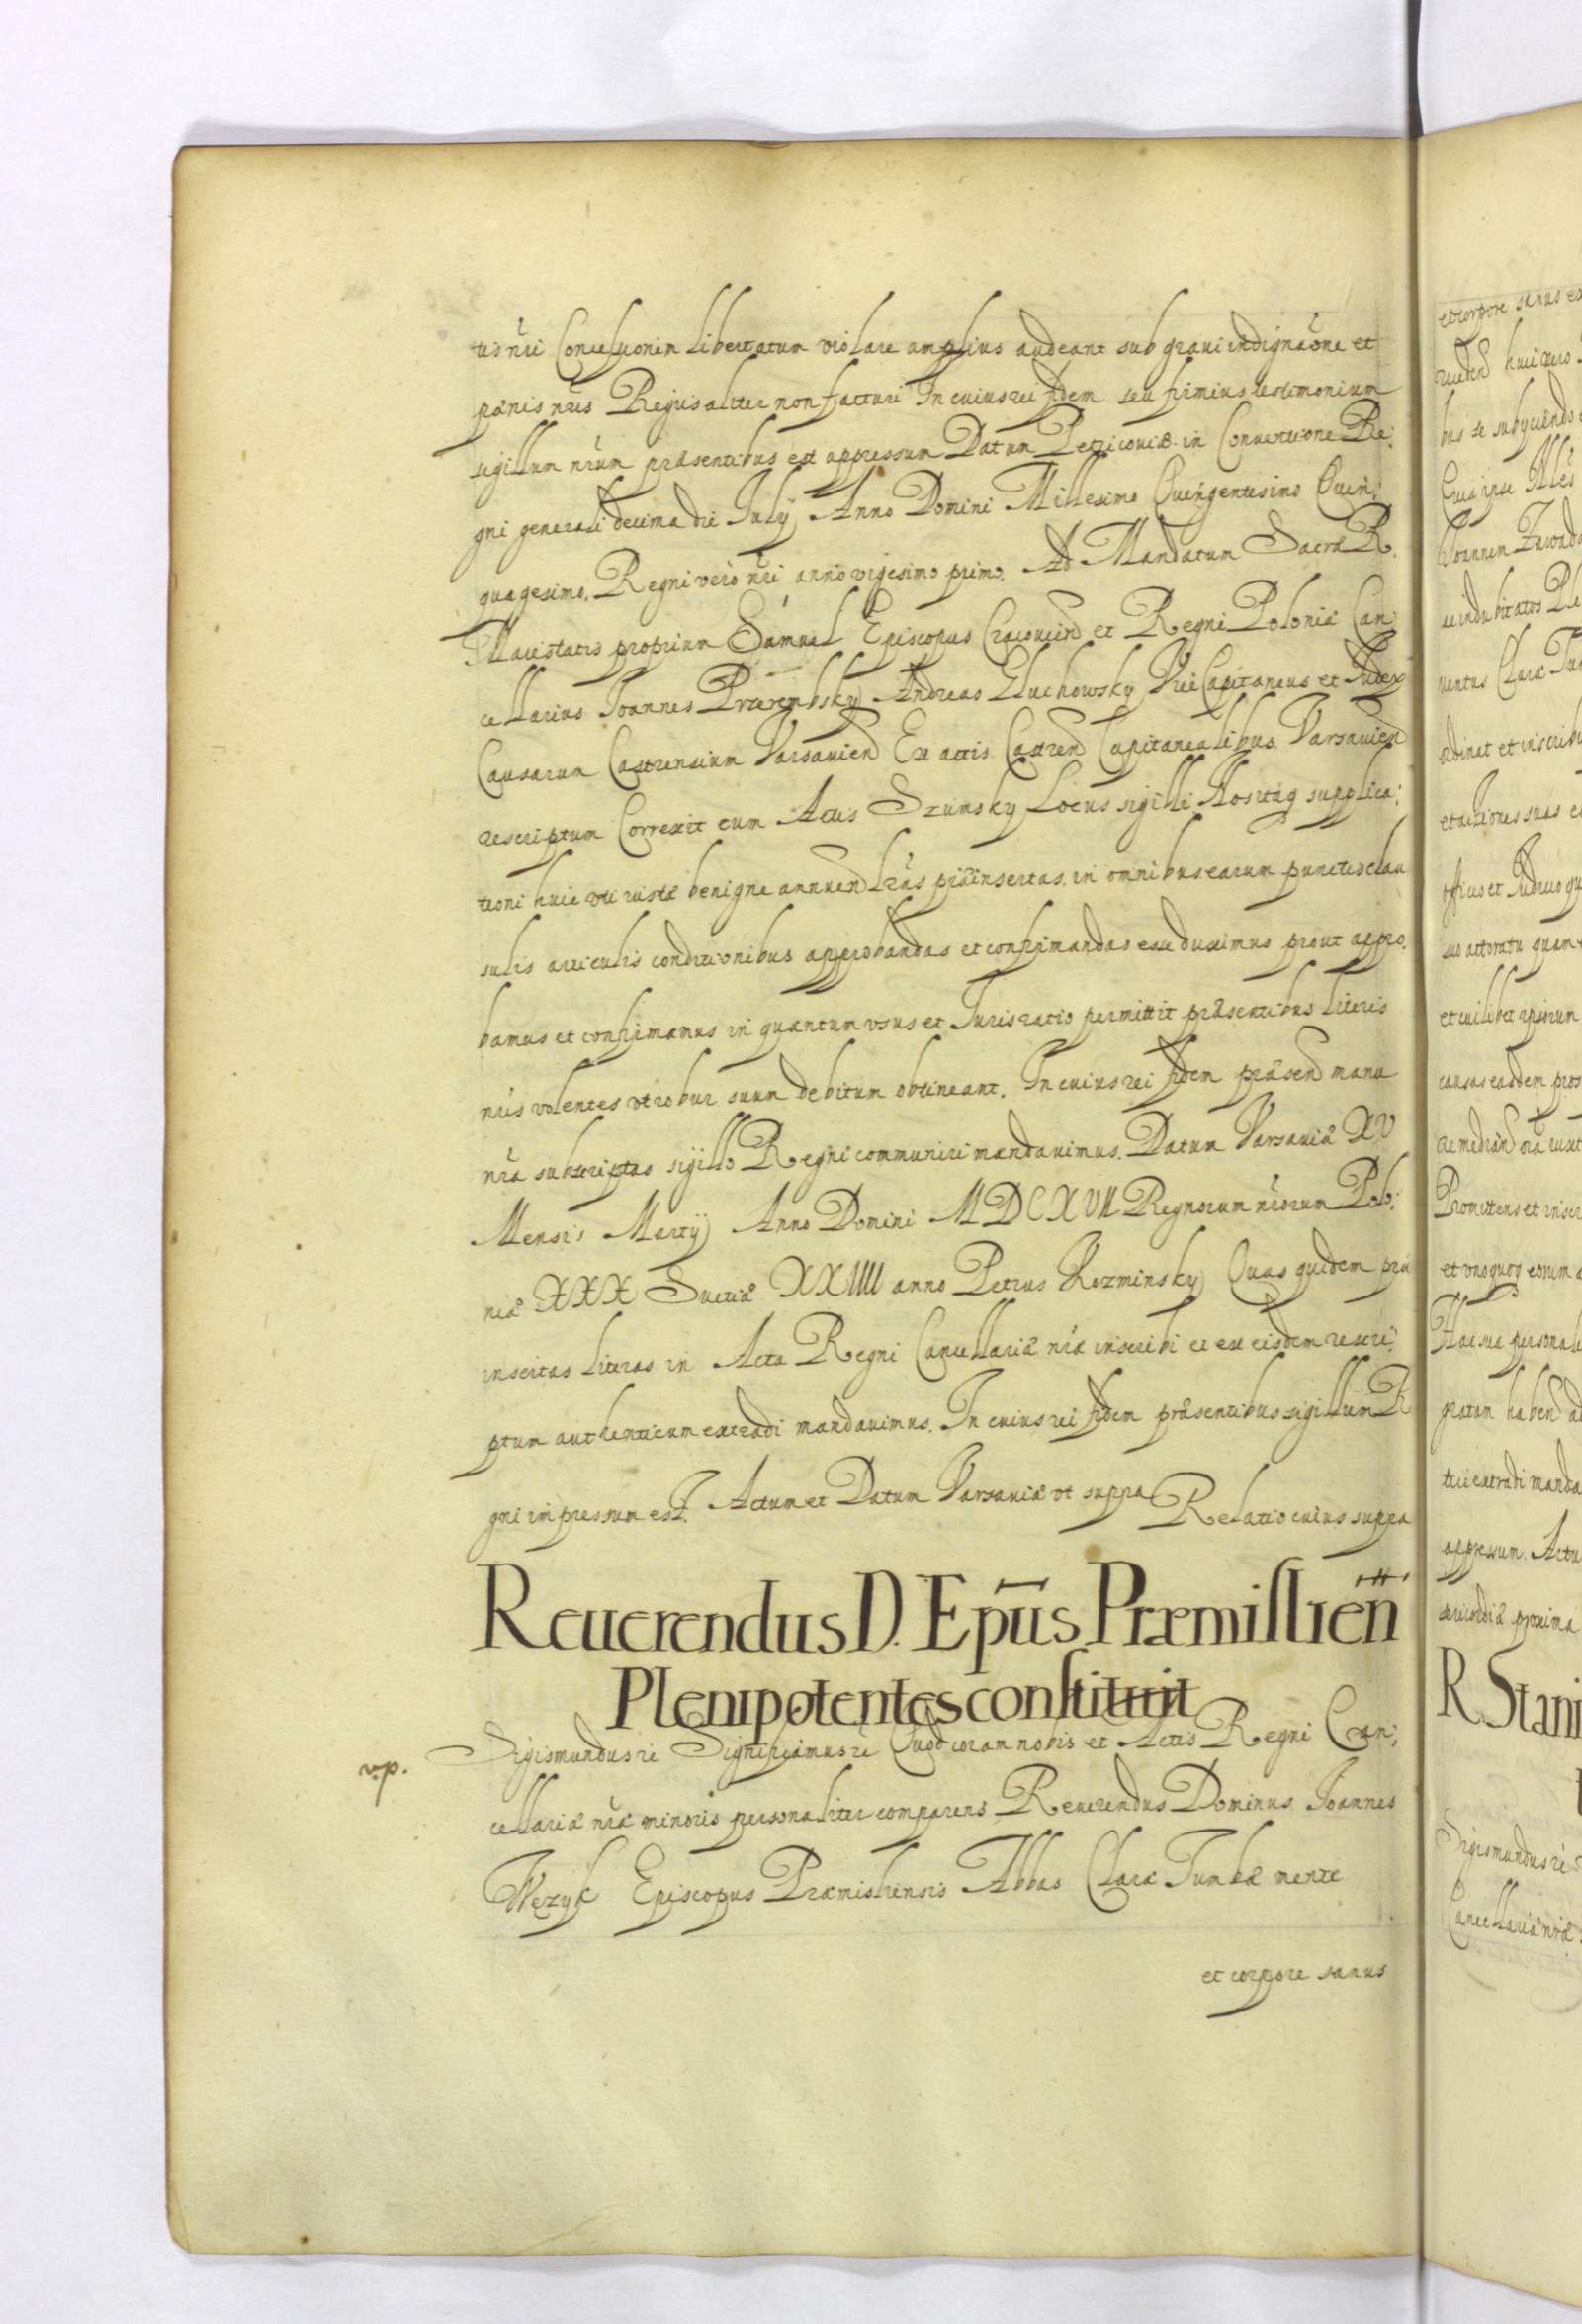 tis nri Concessionem libertatum violare amplius audeant sub graui indignaone et
pænis nris Regijs aliter non facturi In cuius rei fidem seu firmius testimonium
sigillum nrum præsentibus est appressum Datum Petricouiæ in Conuentione Re:
gni generali decima die Iulij Anno Domini Millesimo Quingentesimo Quin:
quagesimo. Regni vero nri anno vigesimo primo. Ad Mandatum Sacræ R.
Maiestatis proprium Samuel Episcopus Cracouien et Regni Poloniæ Can:
cellarius Ioannes Przerembsky Andreas Gluchowsky ViceCapitaneus et Iudex
Causarum Castrensium Varsauien Ex actis Castren Capitanealibus Varsauien
rescriptum Correxit cum Actis Szumsky Locus sigilli Nos itaq supplica:
tioni huic vti iustæ benigne annuen lras præinsertas in omnibus earum punctis clau
sulis articulis conditionibus approbandas et confirmandas esse duximus prout appro:
bamus et confirmamus in quantum vsus et Iuris ratio permittit præsentibus literis
nris volentes vt robur suum debitum obtineant. In cuius rei fidem præsen manu
nra subscriptas sigillo Regni communiri mandauimus. Datum Varsauiæ XV
Mensis Martij Anno Domini MDCXVII Regnorum nrorum Polo:
niæ XXX Suetiæ XXIIII anno Petrus Kozminsky Quas quidem præ
insertas literas in Acta Regni Cancellariæ nræ inscribi et ex eisdem rescri:
ptum authenticum extradi mandauimus. In cuius rei fidem præsentibus sigillum R
gni impressum est. Actum et Datum Varsauiæ vt supra Relatio cuius supra
Reuerendus D. Epus Præmislien
Plenipotentes constituit
v.p. Sigismundus re Significamus re Quod coram nobis et Actis Regni Can:
cellariæ nræ minoris personaliter comparens Reuerendus Dominus Ioannes
Wężyk Episcopus Præmisliensis Abbas Claræ Tumbæ mente
et corpore sanus